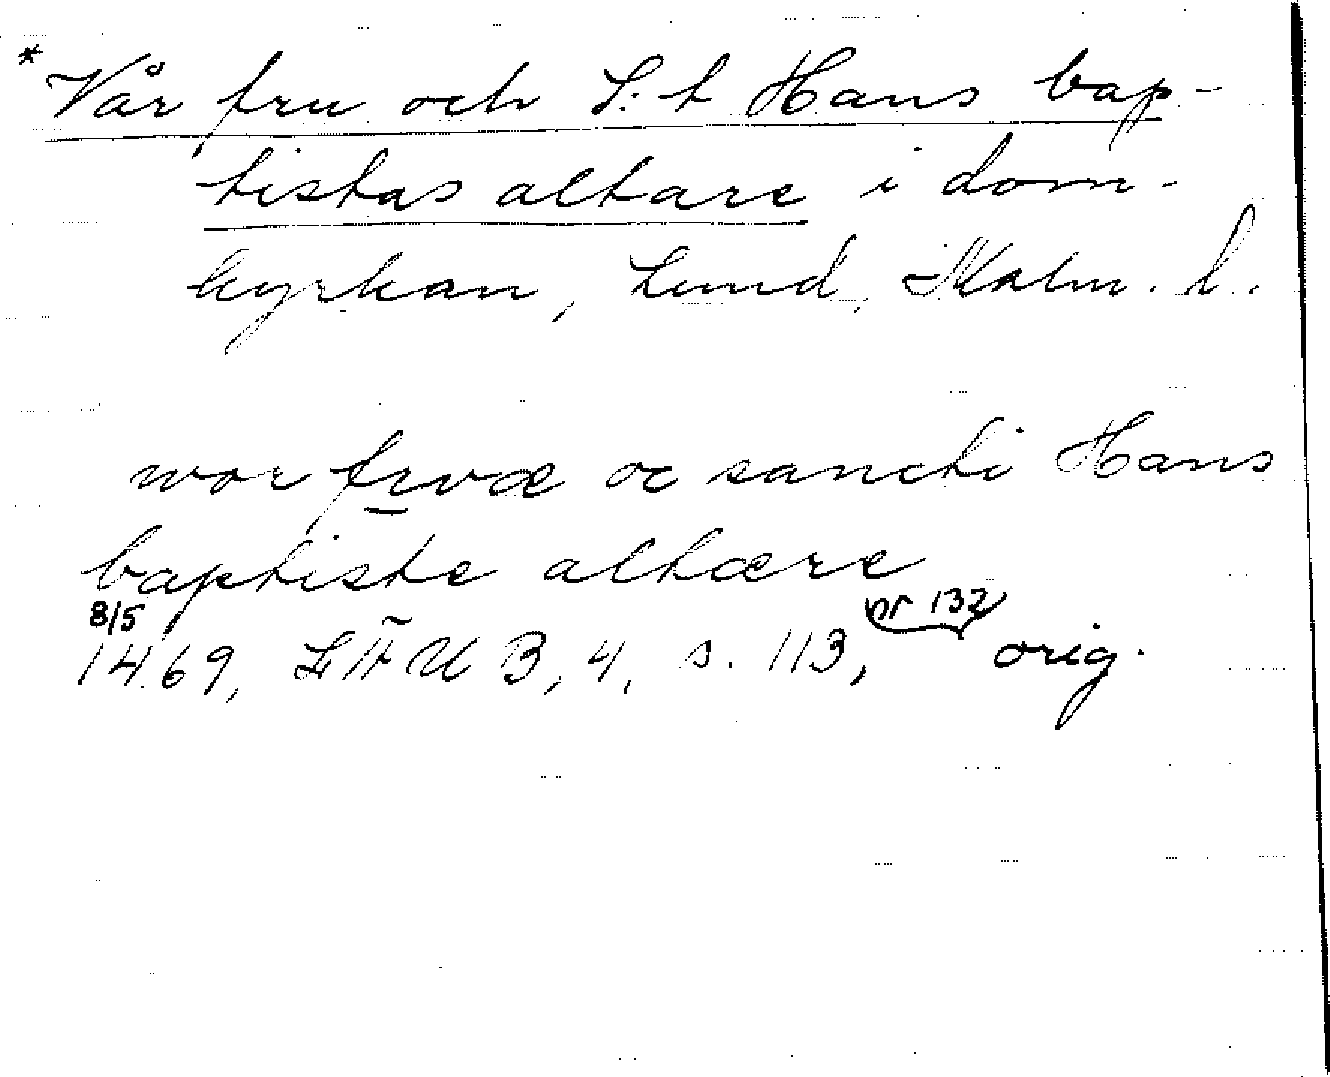 *Vår fru och S:t Hans bap-
tistas altare i dom-
kyrkan, Lund, Malm. l.
wor frvæ oc sancti Hans
baptiste altære
8/5 nr 132
1469, LÄUB, 4, s. 113, orig.